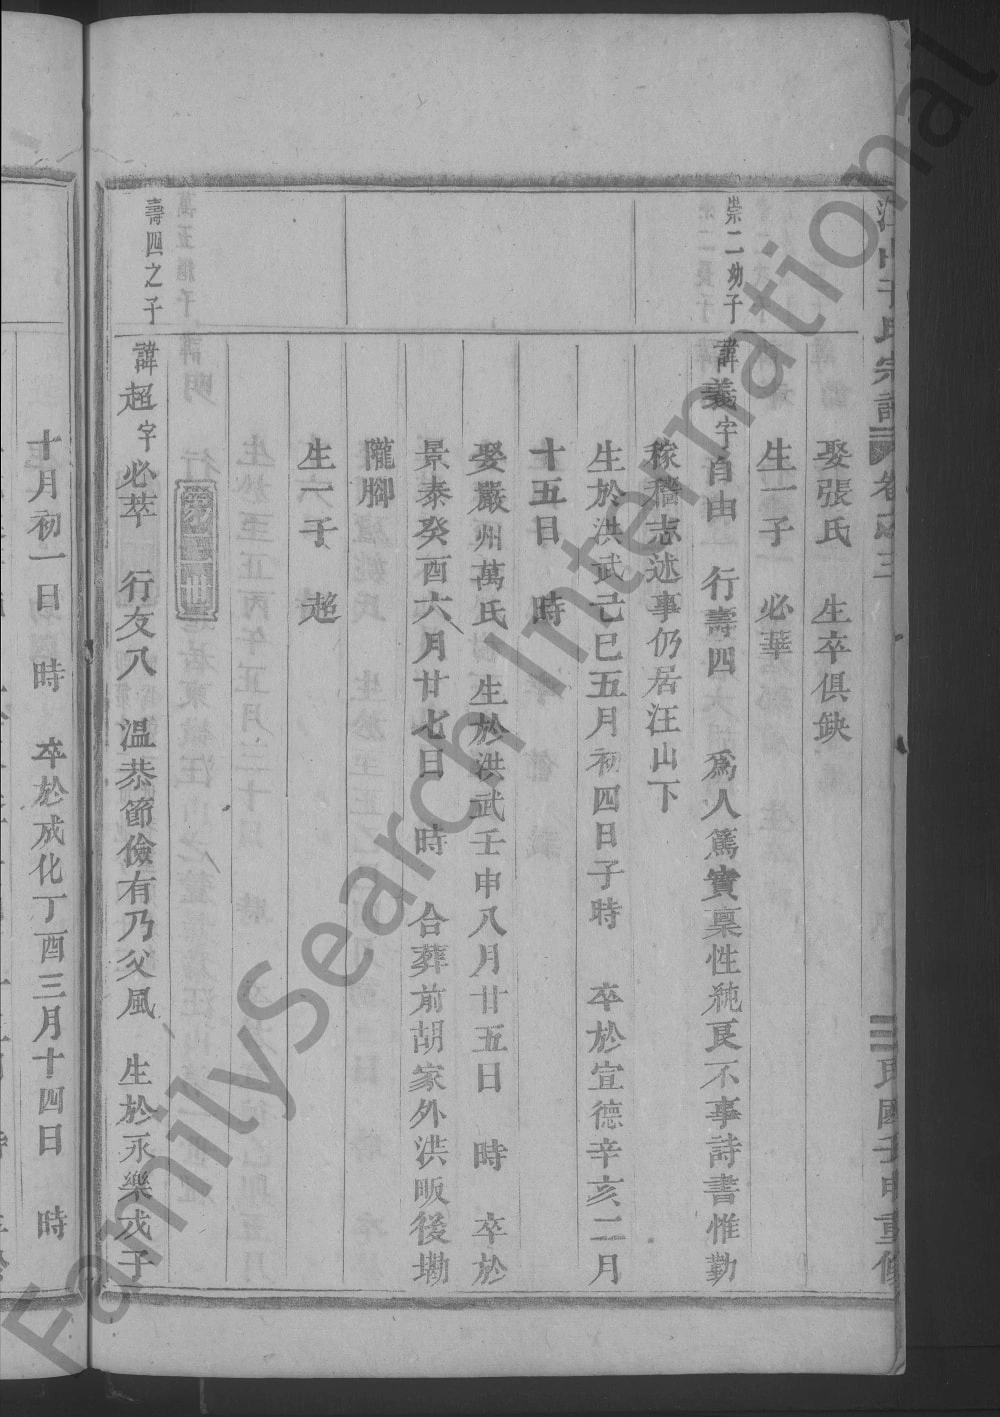 宗譜
民國壬申重修
娶張氏　生卒俱缺
生一子　必華
崇二幼子
諱義字自由　行壽四　爲人篤實稟性純良不事詩書惟勤
稼穡志述事仍居汪山下
生於洪武己巳五月初四日子時　卒於宣德辛亥二月
十五日　時
娶嚴州萬氏　生於洪武壬申八月廿五日　時　卒於
景泰癸酉六月廿七日　時　合葬前胡家外洪畈後塝
隴腳
生一子　超
壽四之子
諱超字必萃　行友八　溫恭節儉有乃父風　生於永樂戊子
十月初一日　時　卒於成化丁酉三月十四日　時
FamilySearch International